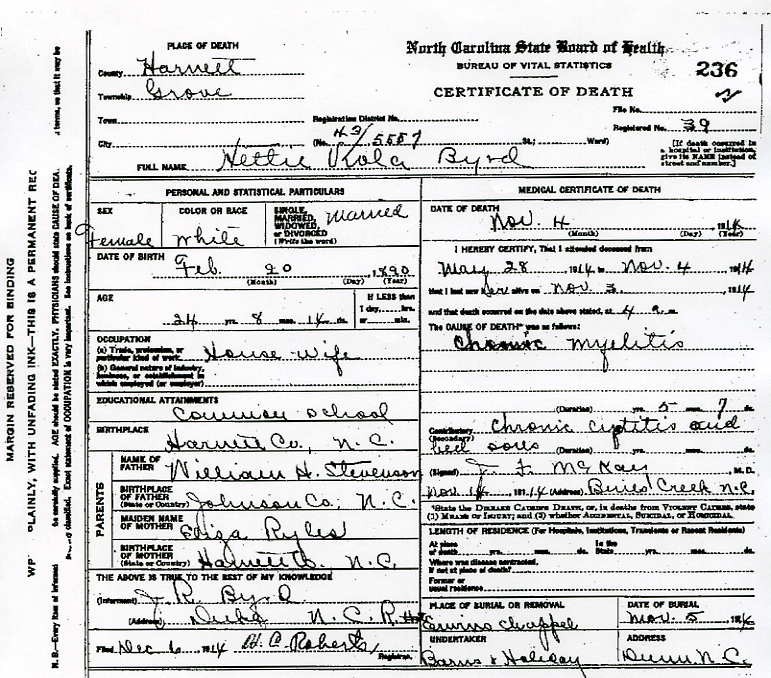 PLACE OF DEATH
County Harnett
Township Grove
Town
City
North Carolina State Board of Health
BUREAU OF VITAL STATISTICS
CERTIFICATE OF DEATH
236
Registration District No. 43/5557
File No.
Registered No. 39
(No. St.; Ward)
[If death occurred in a hospital or institution, give its NAME instead of street and number.]
FULL NAME Nettie Viola Byrd
PERSONAL AND STATISTICAL PARTICULARS
SEX
Female
COLOR OR RACE
White
SINGLE, MARRIED, WIDOWED, or DIVORCED (Write the word)
Married
DATE OF BIRTH
Feb. 20 1890
(Month) (Day) (Year)
AGE
24 yrs. 8 mos. 14 ds.
If LESS than 1 day, hrs. or min.
OCCUPATION
(a) Trade, profession, or particular kind of work. House wife
(b) General nature of industry, business, or establishment in which employed (or employer)
EDUCATIONAL ATTAINMENTS
Common School
BIRTHPLACE
Harnett Co., N.C.
PARENTS
NAME OF FATHER
William H. Stevenson
BIRTHPLACE OF FATHER (State or Country)
Johnson Co, N.C.
MAIDEN NAME OF MOTHER
Eliza Ryles
BIRTHPLACE OF MOTHER (State or Country)
Harnett Co. N.C.
THE ABOVE IS TRUE TO THE BEST OF MY KNOWLEDGE
(Informant) J. R. Byrd
(Address) Duke N.C. R.
Filed Dec 6, 1914 H. C. Roberts, Registrar.
MEDICAL CERTIFICATE OF DEATH
DATE OF DEATH
Nov. 4 1914
(Month) (Day) (Year)
I HEREBY CERTIFY, That I attended deceased from
May 28 1914 to Nov. 4 1914
that I last saw her alive on Nov 3. 1914
and that death occurred on the date above stated, at 4 a. m.
The CAUSE OF DEATH* was as follows:
Chronic myelitis
(Duration) yrs. 5 mos. 7 ds.
Contributory (Secondary) Chronic cystitis and
bed sores (Duration) yrs. mos. ds.
(Signed) J. F. McKay M. D.
Nov. 14 1914 (Address) Buies Creek N.C.
*State the DISEASE CAUSING DEATH, or, in deaths from VIOLENT CAUSES, state (1) MEANS OF INJURY; and (2) whether ACCIDENTAL, SUICIDAL, OR HOMICIDAL.
LENGTH OF RESIDENCE (For Hospitals, Institutions, Transients or Recent Residents)
At place of death yrs. mos. ds. In the State yrs. mos. ds.
Where was disease contracted, If not at place of death?
Former or usual residence
PLACE OF BURIAL OR REMOVAL
Chappel
DATE OF BURIAL
Nov. 5 191
UNDERTAKER
Barns & Holiday
ADDRESS
Dunn N.C.
MARGIN RESERVED FOR BINDING
PLAINLY, WITH UNFADING INK—THIS IS A PERMANENT REC
N. B.—Every item of informa
be carefully supplied. AGE should be stated EXACTLY. PHYSICIANS should state CAUSE OF DEA
classified. Exact statement of OCCUPATION is very important. See instructions on back of certificate.
terms, so that it may be